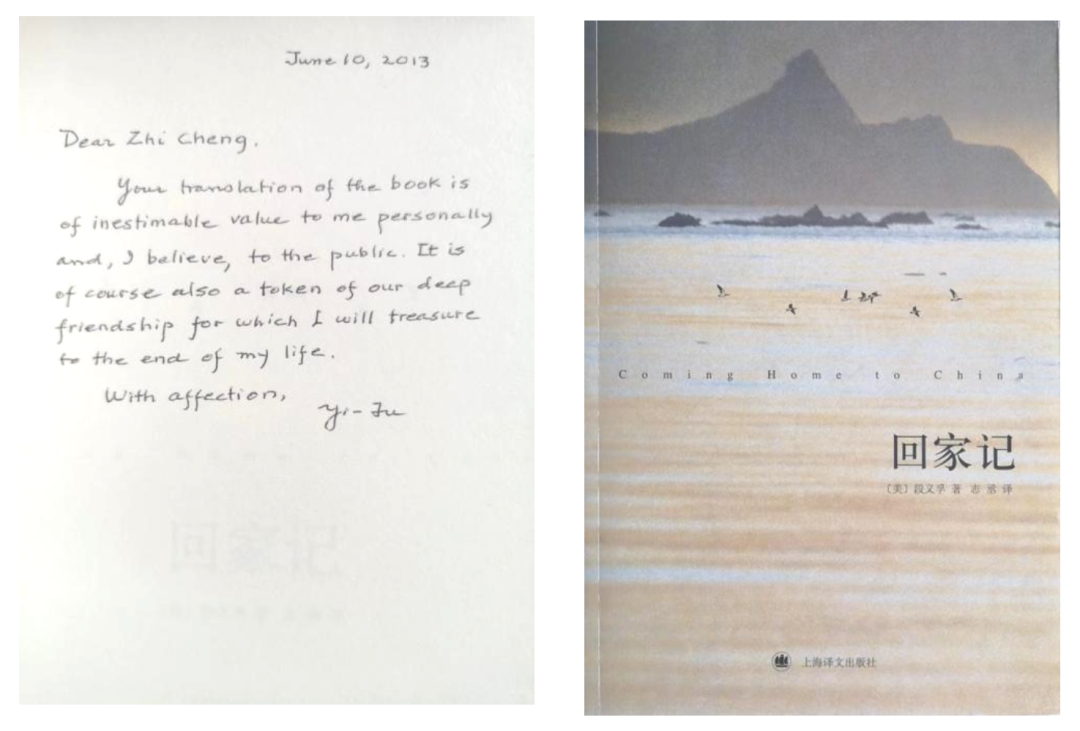 June 10, 2013
Dear Zhi Cheng,
Your translation of the book is
of inestimable value to me personally
and, I believe, to the public. It is
of course also a token of our deep
friendship for which I will treasure
to the end of my life.
With affection,
Yi-Fu
回家记
Coming Home to China
回家记
〔美〕段义孚 著 志丞 译
上海译文出版社